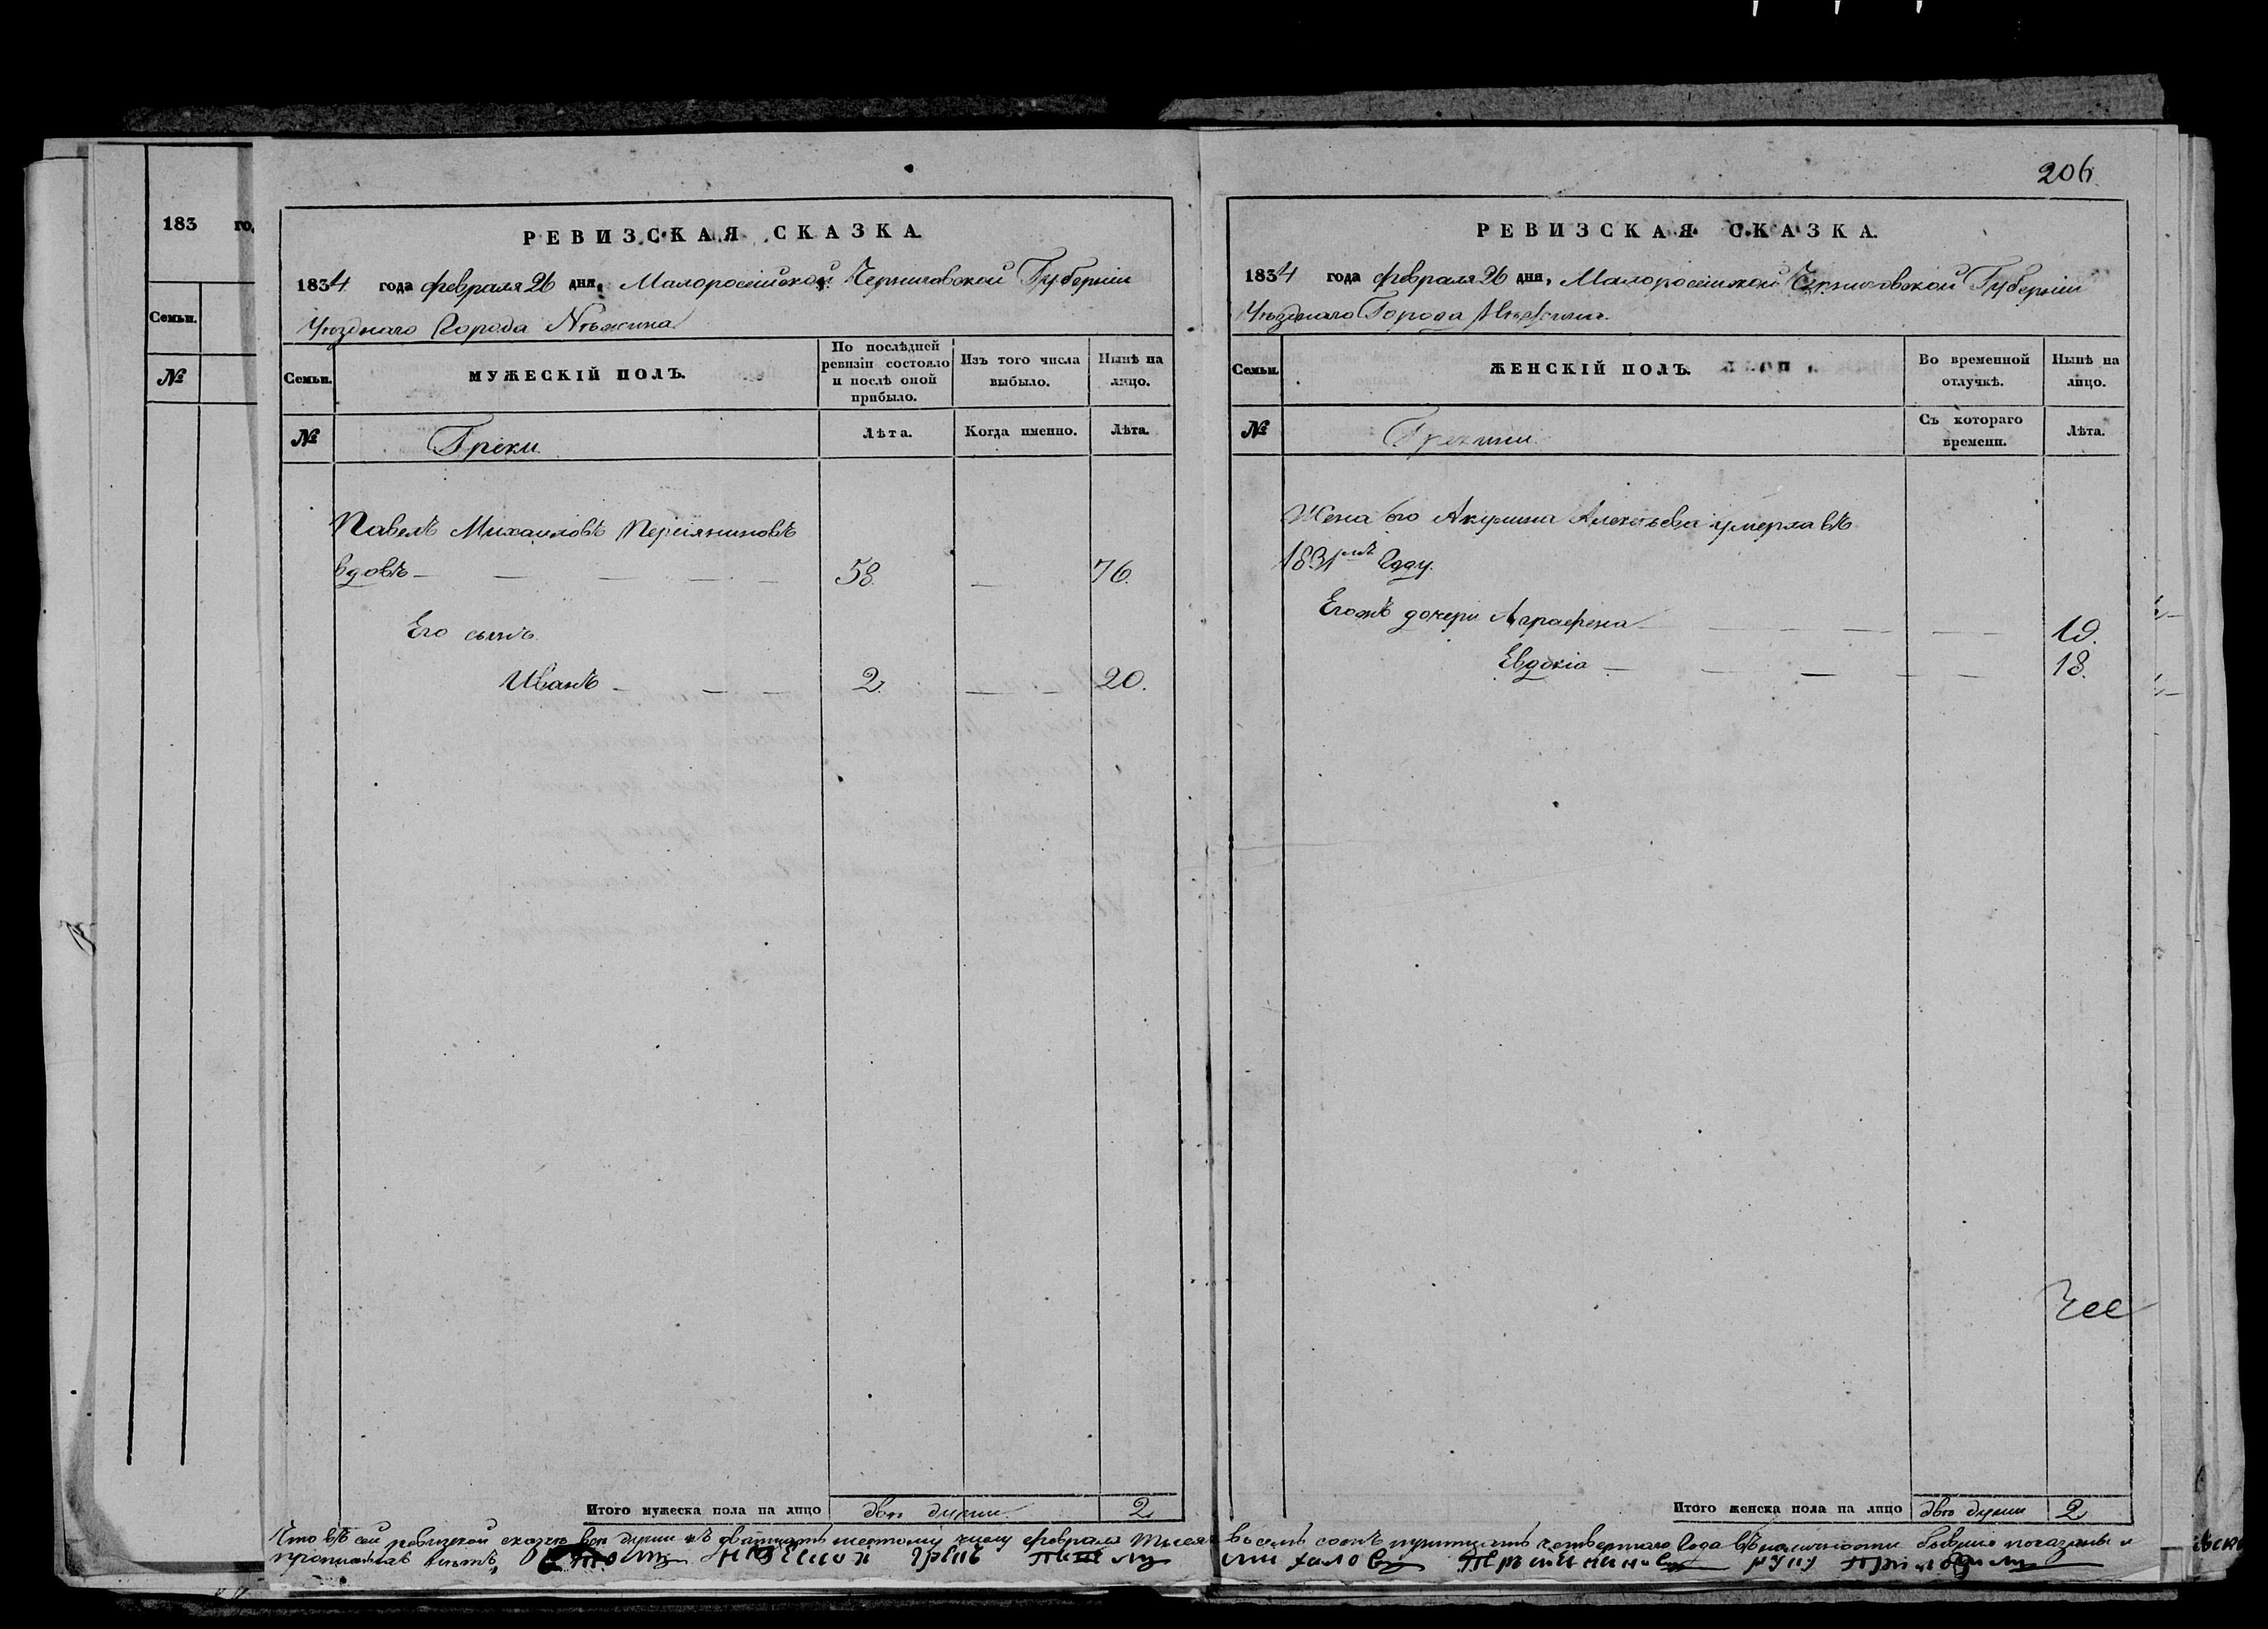 183 го
Семьи.
№
РЕВИЗСКАЯ СКАЗКА.
1834 года февраля 26 дня, Малоросейской Черниговской Губернии
Уѣзднаго Города Нѣжина
Семьи.
МУЖЕСКІЙ ПОЛЪ.
По послѣдней ревизіи состояло и послѣ оной прибыло.
Изъ того числа выбыло.
Нынѣ на лицо.
№
Греки
Лѣта.
Когда именно.
Лѣта.
Павелъ Михаиловъ Персіяниновъ
вдовъ — 58. — 76.
Его сынъ
Иванъ — 2. — 20.
Итого мужеска пола на лицо двѣ души 2
206
РЕВИЗСКАЯ СКАЗКА.
1834 года февраля 26 дня, Малоросейской Черниговской Губернии
Уѣзднаго Города Нѣжина.
Семьи.
ЖЕНСКІЙ ПОЛЪ.
Во временной отлучкѣ.
Нынѣ на лицо.
№
Грекини
Съ котораго времени.
Лѣта.
Жена его Акулина Алексѣева умерла въ
1831мъ Году.
Егожъ дочери Аграфена — 19.
Евдокіа — 18.
Итого женска пола на лицо двѣ души 2
Что въ сей ревизской сказкѣ все души къ дватцать шестому числу февраля тысеча восемь сотъ тритцать четвертаго года въ наличности бывшие показаны и
прописныхъ нѣтъ, нѣжинской грекъ павелъ михаловъ персиениновъ руку приложилъ